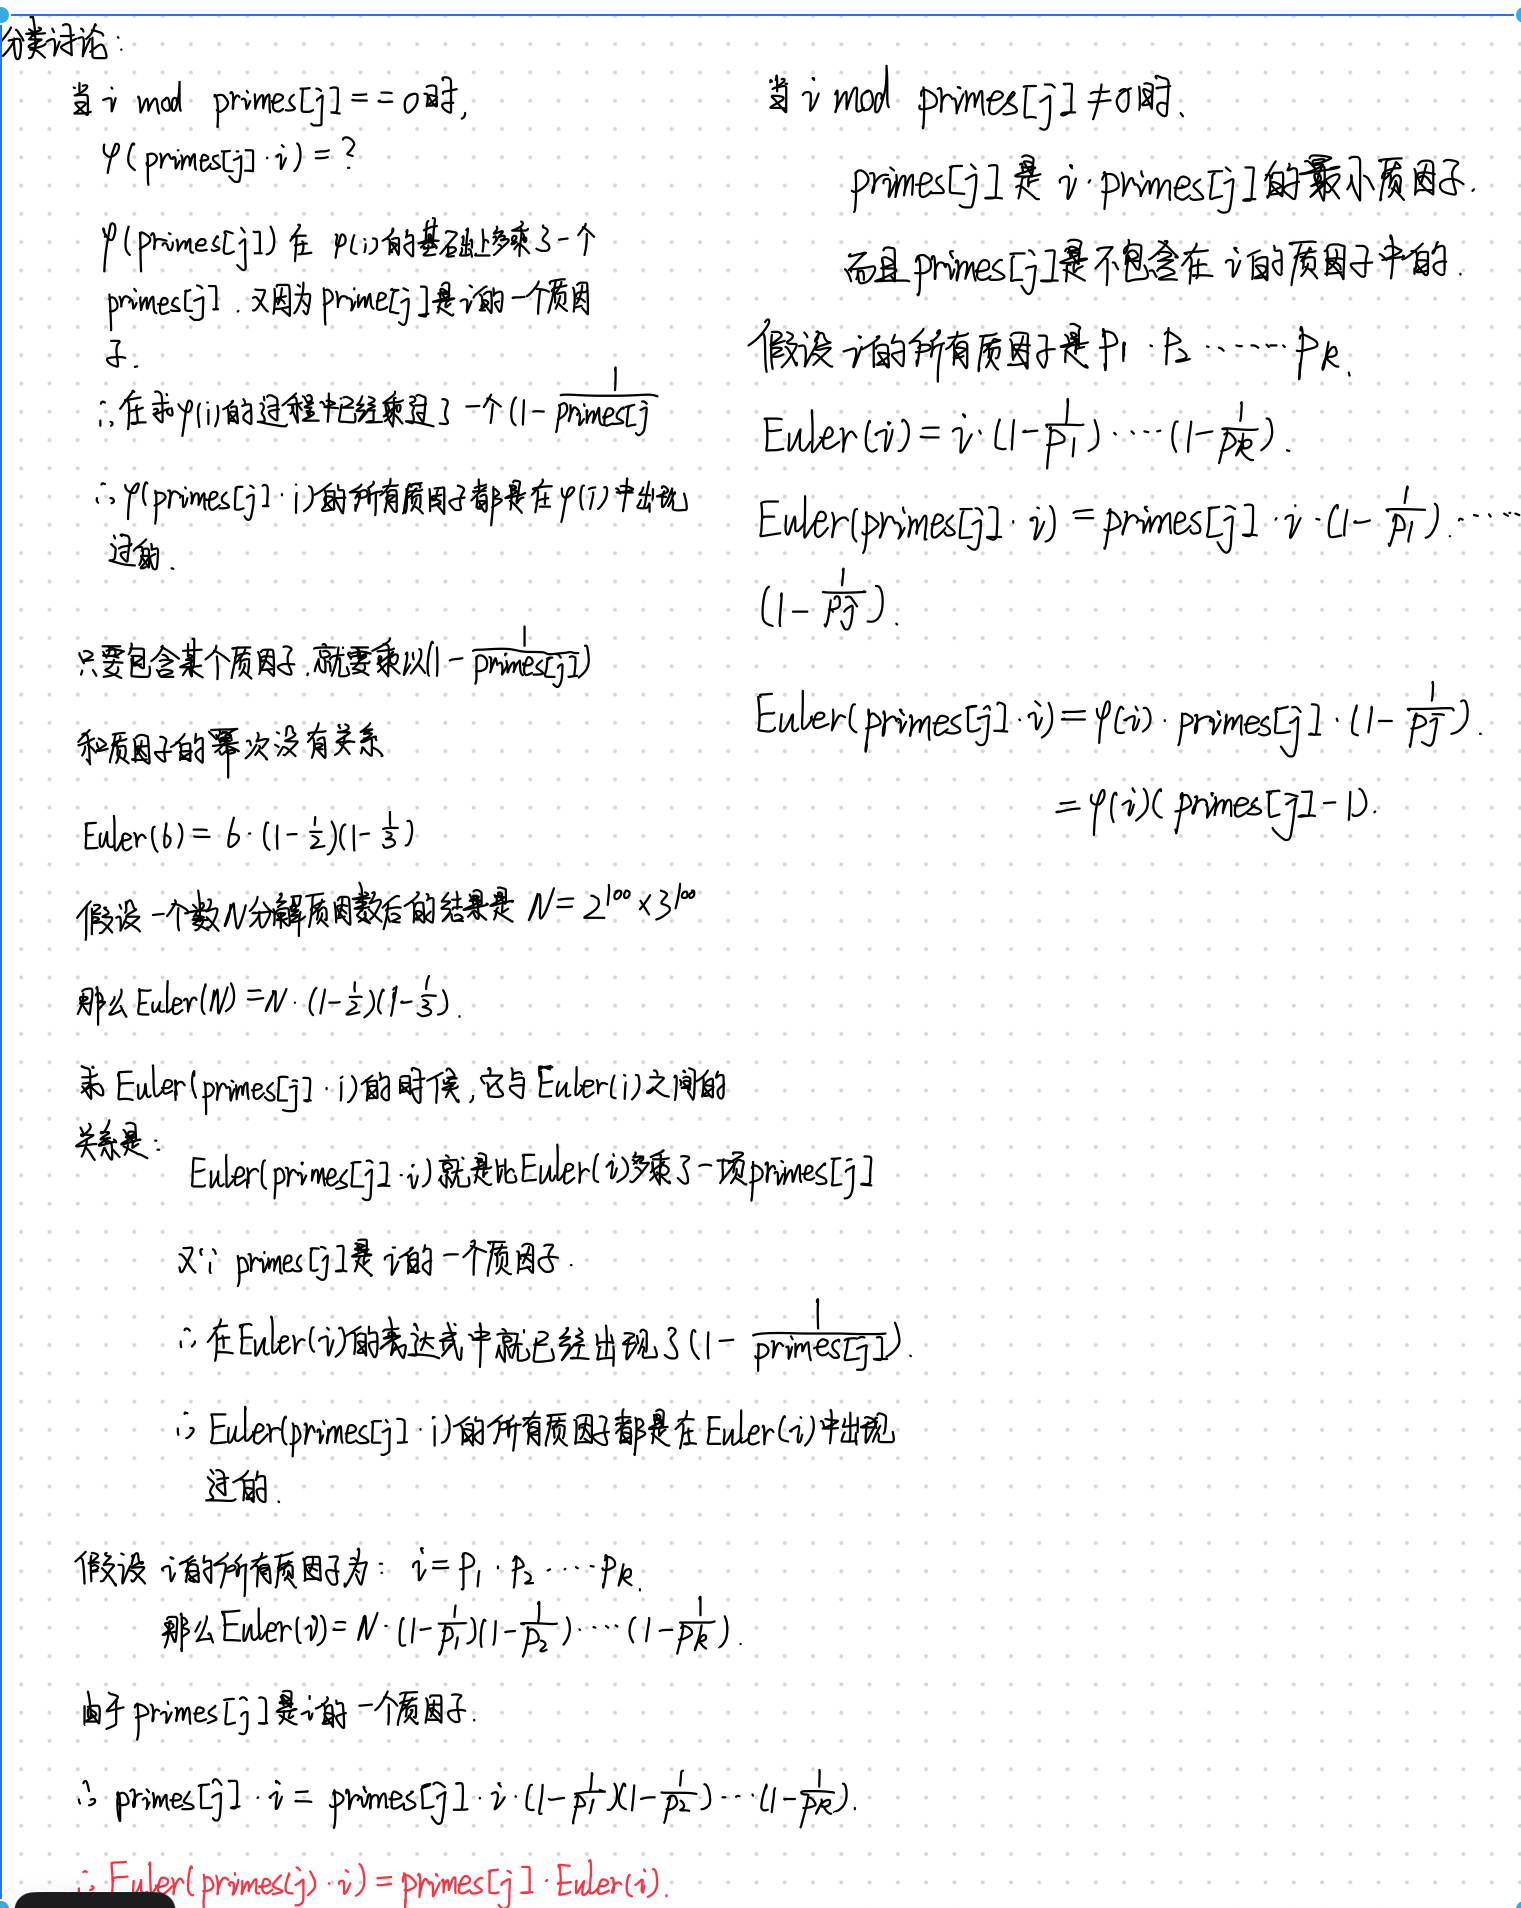 分类讨论:
当 i mod primes[j] == 0时,
φ(primes[j]·i) = ?
φ(primes[j]) 在 φ(i)的基础上多乘了一个
primes[j]. 又因为 prime[j]是i的一个质因
子.
∴在求φ(i)的过程中已经乘过了一个(1 - 1/primes[j
∴φ(primes[j]·i)的所有质因子都是在φ(i)中出现
过的.
只要包含某个质因子.就要乘以(1 - 1/primes[j])
和质因子的幂次没有关系
Euler(6) = 6·(1-1/2)(1-1/3)
假设一个数N分解质因数后的结果是 N = 2^100 × 3^100
那么 Euler(N) = N·(1-1/2)(1-1/3).
求 Euler(primes[j]·i)的时候,它与Euler(i)之间的
关系是:
Euler(primes[j]·i)就是比Euler(i)多乘了一项primes[j]
又∵ primes[j]是 i的一个质因子.
∴在Euler(i)的表达式中就已经出现了(1 - 1/primes[j]).
∴ Euler(primes[j]·i)的所有质因子都是在Euler(i)中出现
过的.
假设 i的所有质因子为: i = P1·P2·····Pk.
那么 Euler(i) = N·(1-1/P1)(1-1/P2)····(1-1/Pk).
由于 primes[j]是i的一个质因子.
∴ primes[j]·i = primes[j]·i·(1-1/P1)(1-1/P2)···(1-1/Pk).
∴ Euler(primes(j)·i) = primes[j]·Euler(i).
当 i mod primes[j] ≠ 0时.
primes[j]是 i·primes[j]的最小质因子.
而且primes[j]是不包含在 i的质因子中的.
假设 i的所有质因子是P1·P2······Pk.
Euler(i) = i·(1-1/P1)····(1-1/Pk).
Euler(primes[j]·i) = primes[j]·i·(1-1/P1).·····
(1-1/Pj).
Euler(primes[j]·i) = φ(i)·primes[j]·(1-1/Pj).
= φ(i)(primes[j]-1).